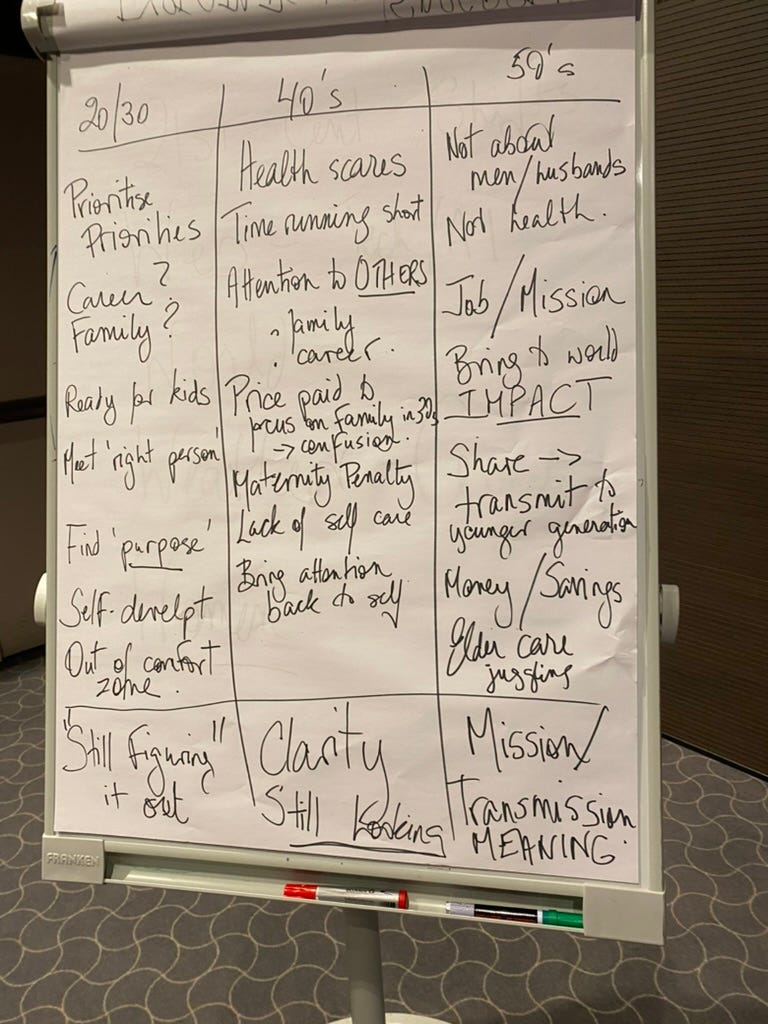 20/30
Prioritise
Priorities
Career?
Family?
Ready for kids
Meet 'right person'
Find 'purpose'
Self-develpt
Out of comfort
zone.
"Still figuring"
it out
40's
Health scares
Time running short
Attention to OTHERS
. family
. career.
Price paid to
focus on family in 30s
→ confusion.
Maternity Penalty
Lack of self care
Bring attention
back to self
Clarity
Still looking
50's
Not about
men/husbands
Not health.
Job/Mission
Bring to world
IMPACT
Share →
transmit to
younger generation
Money/Savings
Elder care
juggling
Mission/
Transmission
MEANING.
FRANKEN